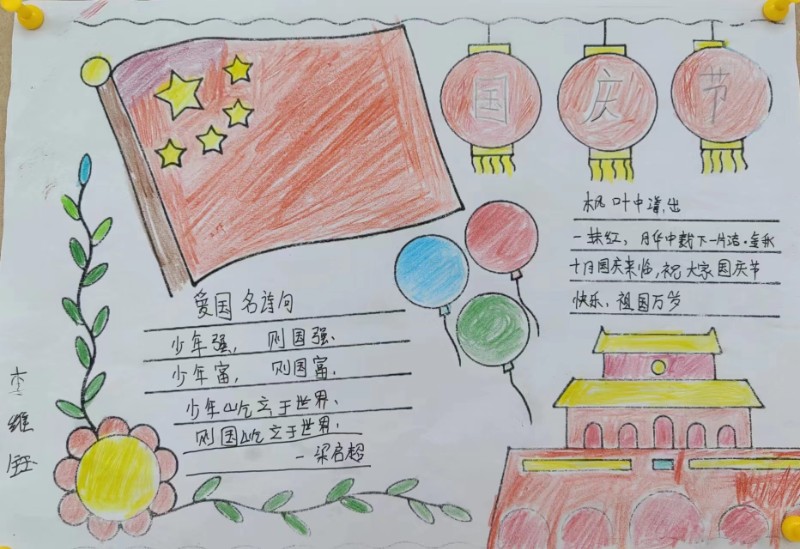 国庆节
爱国名诗句
少年强，则国强、
少年富，则国富、
少年屹立于世界、
则国屹立于世界，
-梁启超
枫叶中清出
一抹红，月华中裁下一片洁·金秋
十月国庆来临，祝大家国庆节
快乐、祖国万岁
李维